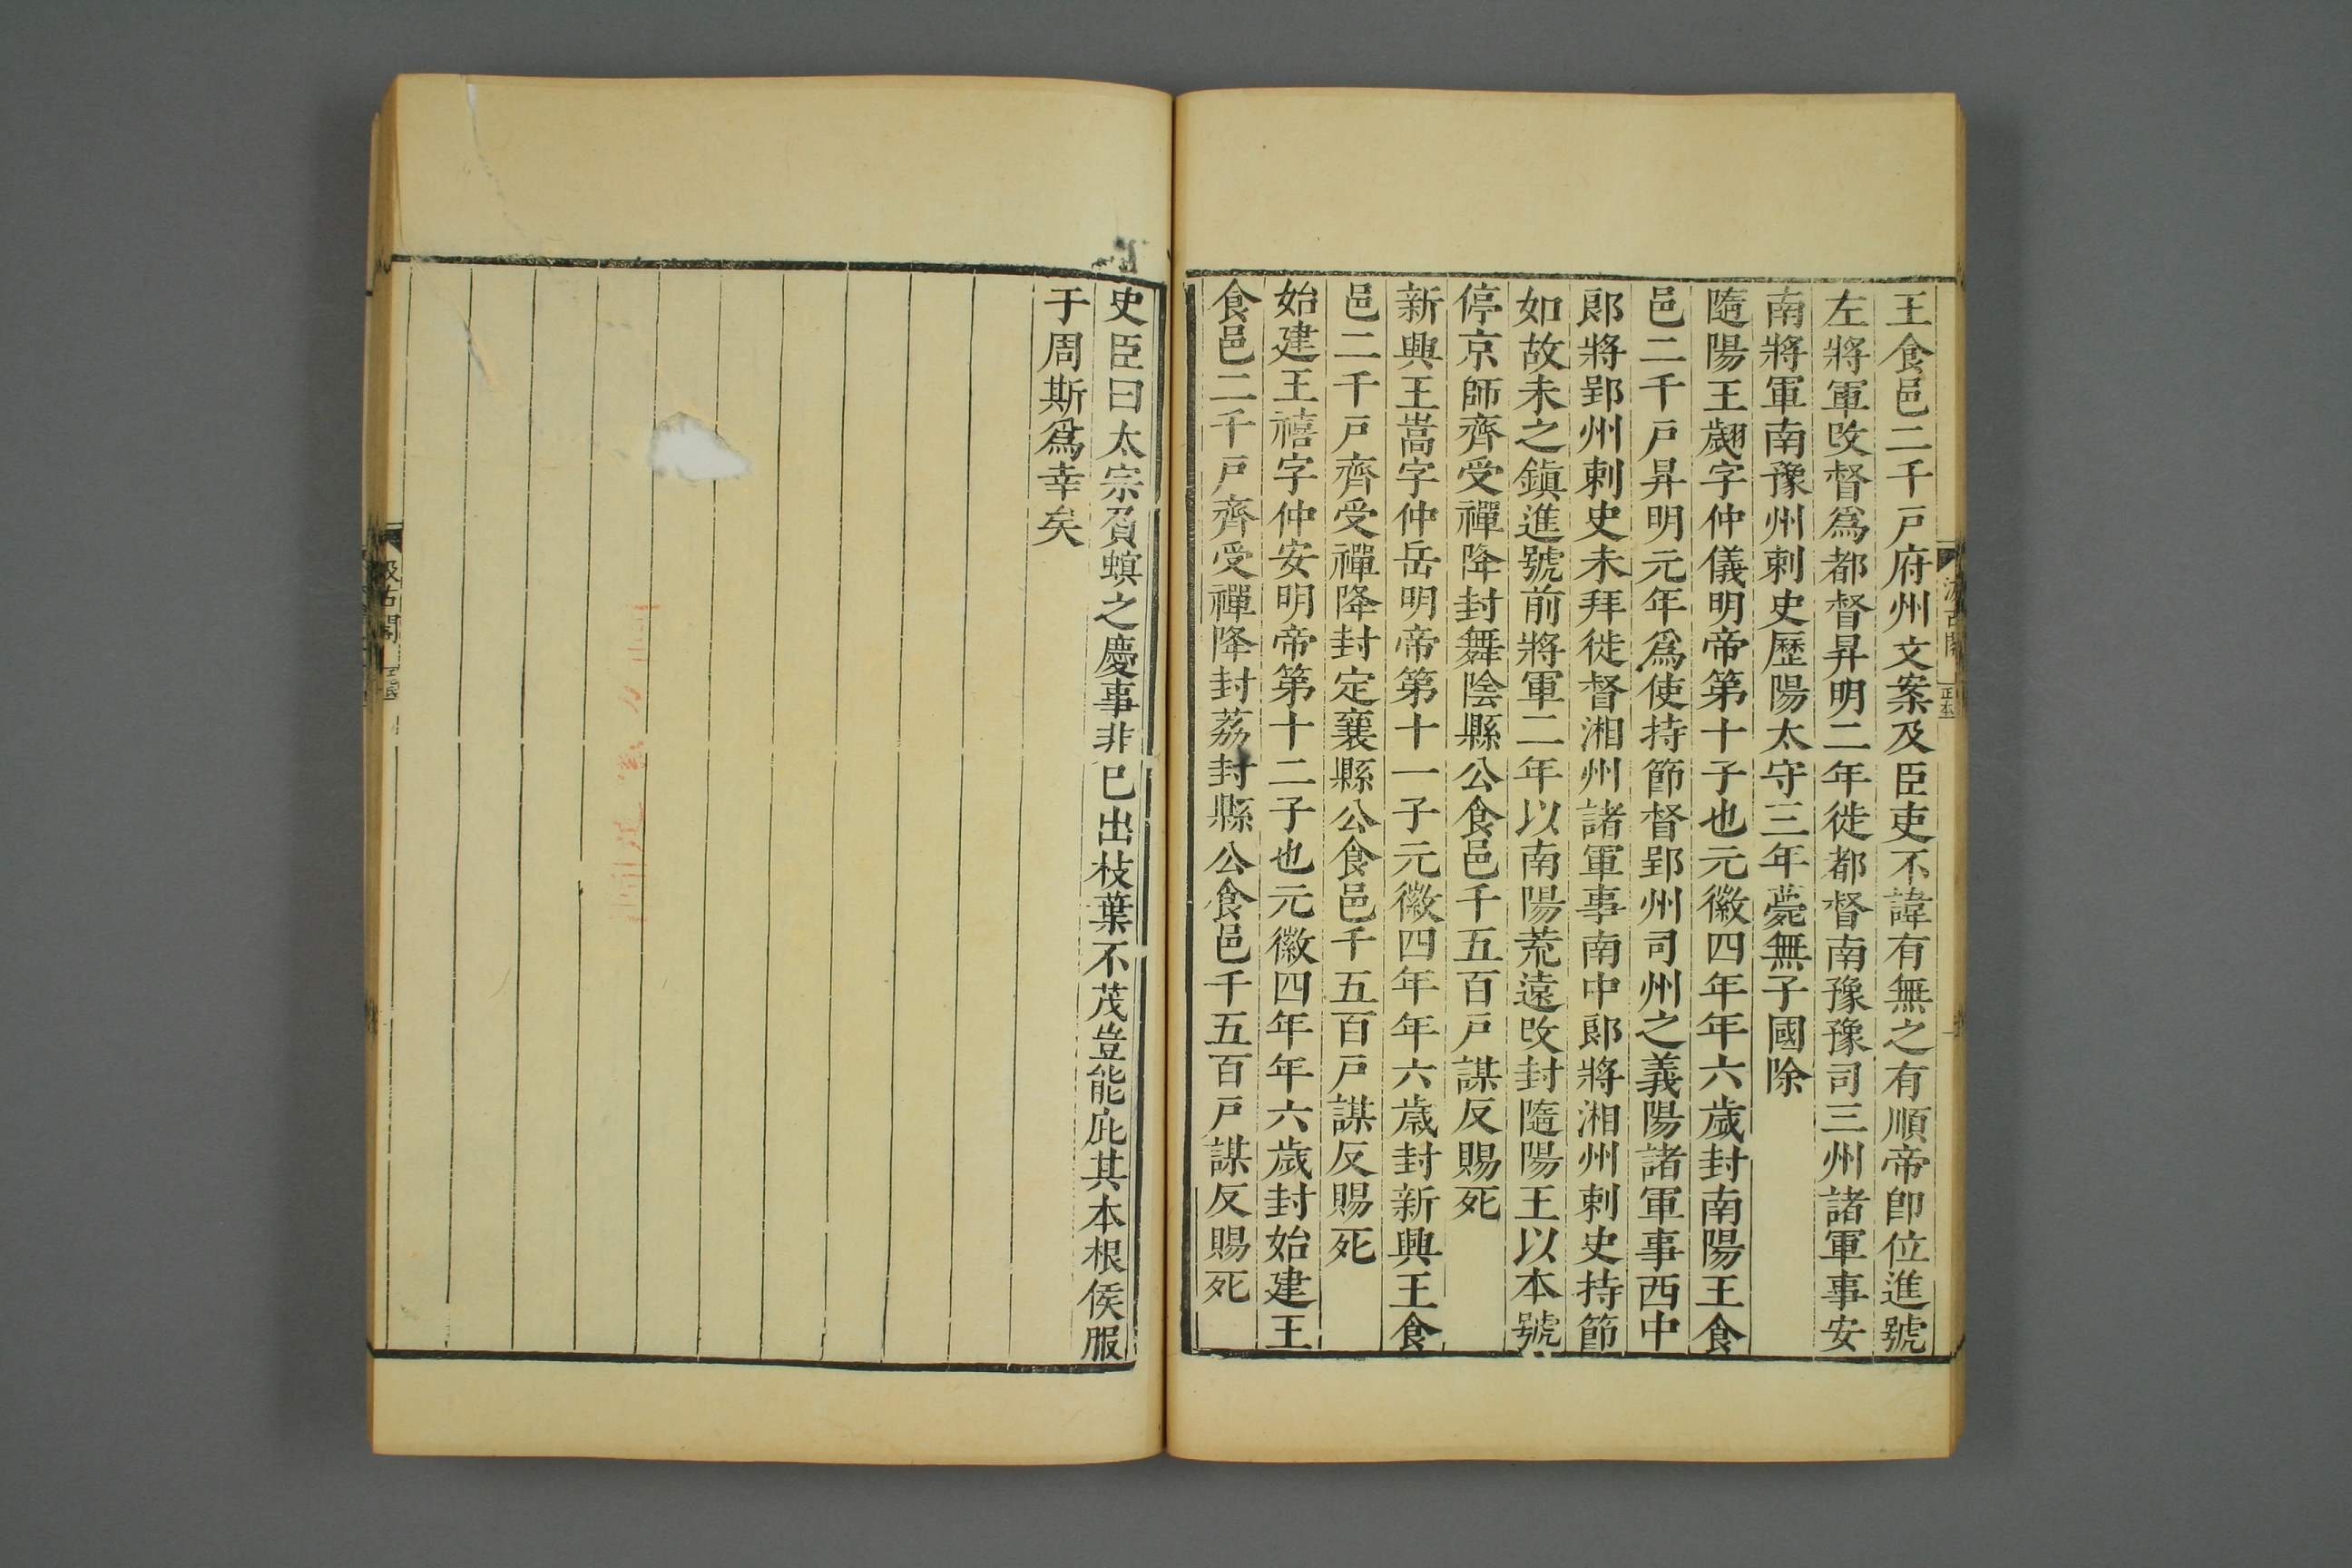 王食邑二千戸府州文案及臣吏不諱有無之有順帝卽位進號
左將軍攺督爲都督昇明二年徙都督南豫豫司三州諸軍事安
南將軍南豫州刺史歷陽太守三年薨無子國除
隨陽王翽字仲儀明帝第十子也元徽四年年六歲封南陽王食
邑二千戸昇明元年爲使持節督郢州司州之義陽諸軍事西中
郞將郢州刺史未拜徙督湘州諸軍事南中郞將湘州刺史持節
如故未之鎭進號前將軍二年以南陽荒遠攺封隨陽王以本號
停京師齊受禪降封舞陰縣公食邑千五百戸謀反賜死
新興王嵩字仲岳明帝第十一子元徽四年年六歲封新興王食
邑二千戸齊受禪降封定襄縣公食邑千五百戸謀反賜死
始建王禧字仲安明帝第十二子也元徽四年年六歲封始建王
食邑二千戸齊受禪降封荔封縣公食邑千五百戸謀反賜死
史臣曰太宗負螟之慶事非已出枝葉不茂豈能庇其本根侯服
于周斯爲幸矣
汲古閣